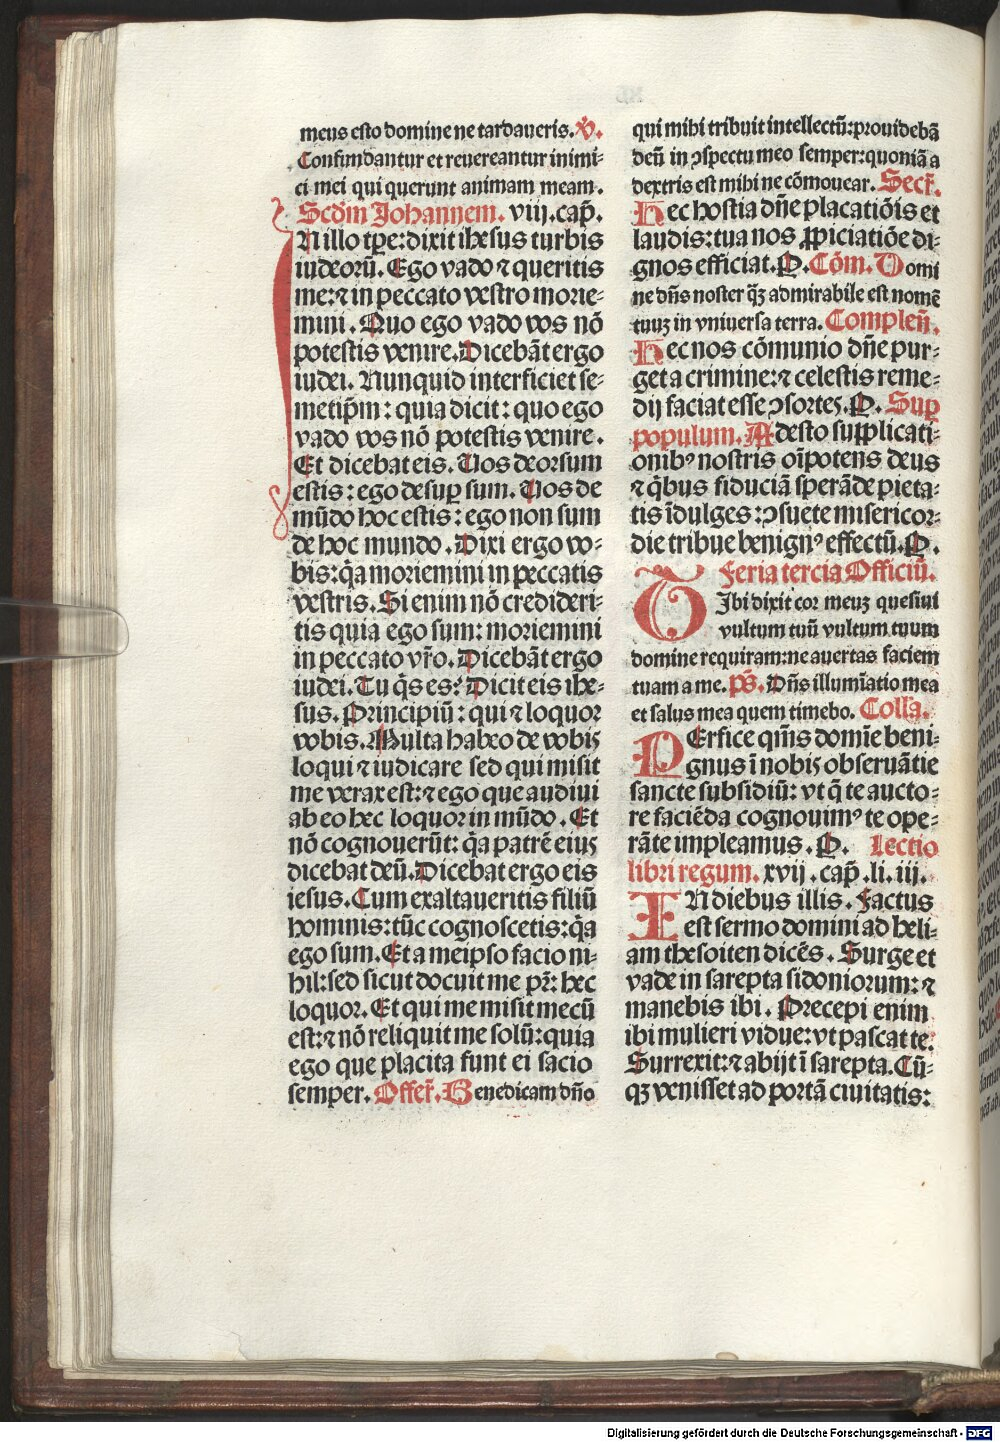 meus esto domine ne tardaueris. V̇.
Confundantur et reuereantur inimi-
ci mei qui querunt animam meam.
Scd̄m Johannem. viij. cap̄.
IN illo tꝑe: dixit ihesus turbis
iudeorū. Ego vado ⁊ queritis
me: ⁊ in peccato vestro morie-
mini. Quo ego vado vos nō
potestis venire. Dicebāt ergo
iudei. Nunquid interficiet se-
metip̄m: quia dicit: quo ego
vado vos nō potestis venire.
Et dicebat eis. Vos deorsum
estis: ego desuꝑ sum. Vos de
mūdo hoc estis: ego non sum
de hoc mundo. Dixi ergo vo-
bis: q̄a moriemini in peccatis
vestris. Si enim nō credideri-
tis quia ego sum: moriemini
in peccato vr̄o. Dicebāt ergo
iudei. Tu q̄s es? Dicit eis ihe-
sus. Principiū: qui ⁊ loquor
vobis. Multa habeo de vobis
loqui ⁊ iudicare sed qui misit
me verax est: ⁊ ego que audiui
ab eo hec loquor in mūdo. Et
nō cognouerūt: q̄a patrē eius
dicebat deū. Dicebat ergo eis
iesus. Cum exaltaueritis filiū
hominis: tūc cognoscetis: q̄a
ego sum. Et a meipso facio ni-
hil: sed sicut docuit me pr̄: hec
loquor. Et qui me misit mecū
est: ⁊ nō reliquit me solū: quia
ego que placita sunt ei facio
semper. Offer̄. Benedicam dn̄o
qui mihi tribuit intellectū: prouidebā
deū in ꝯspectu meo semper: quoniā a
dextris est mihi ne cōmouear. Secr̄.
Hec hostia dn̄e placatiōis et
laudis: tua nos ꝓpiciatiōe di-
gnos efficiat. P. Cōm. Domi
ne dn̄s noster qꝫ admirabile est nomē
tuuꝫ in vniuersa terra. Complen̄.
Hec nos cōmunio dn̄e pur-
get a crimine: ⁊ celestis reme-
dij faciat esse ꝯsortes. P. Suꝑ
populum. Adesto supplicati-
onibꝰ nostris oīpotens deus
⁊ q̄bus fiduciā sperāde pieta-
tis īdulges: ꝯsuete misericor-
die tribue benignꝰ effectū. P.
Feria tercia Officiū.
TIbi dixit cor meuꝫ quesiui
vultum tuū vultum tuum
domine requiram: ne auertas faciem
tuam a me. ps̄. Dn̄s illumīatio mea
et salus mea quem timebo. Coll̄a.
PErfice qm̄s domīe beni-
gnus ī nobis obseruātie
sancte subsidiū: vt q̄ te aucto-
re faciēda cognouimꝰ te ope-
rāte impleamus. P. Lectio
libri regum. xvij. cap̄. li. iii.
IN diebus illis. Factus
est sermo domini ad heli-
am thesbiten dicēs. Surge et
vade in sarepta sidoniorum: ⁊
manebis ibi. Precepi enim
ibi mulieri vidue: vt pascat te.
Surrexit: ⁊ abijt ī sarepta. Cū-
qꝫ venisset ad portā ciuitatis:
Digitalisierung gefördert durch die Deutsche Forschungsgemeinschaft - DFG